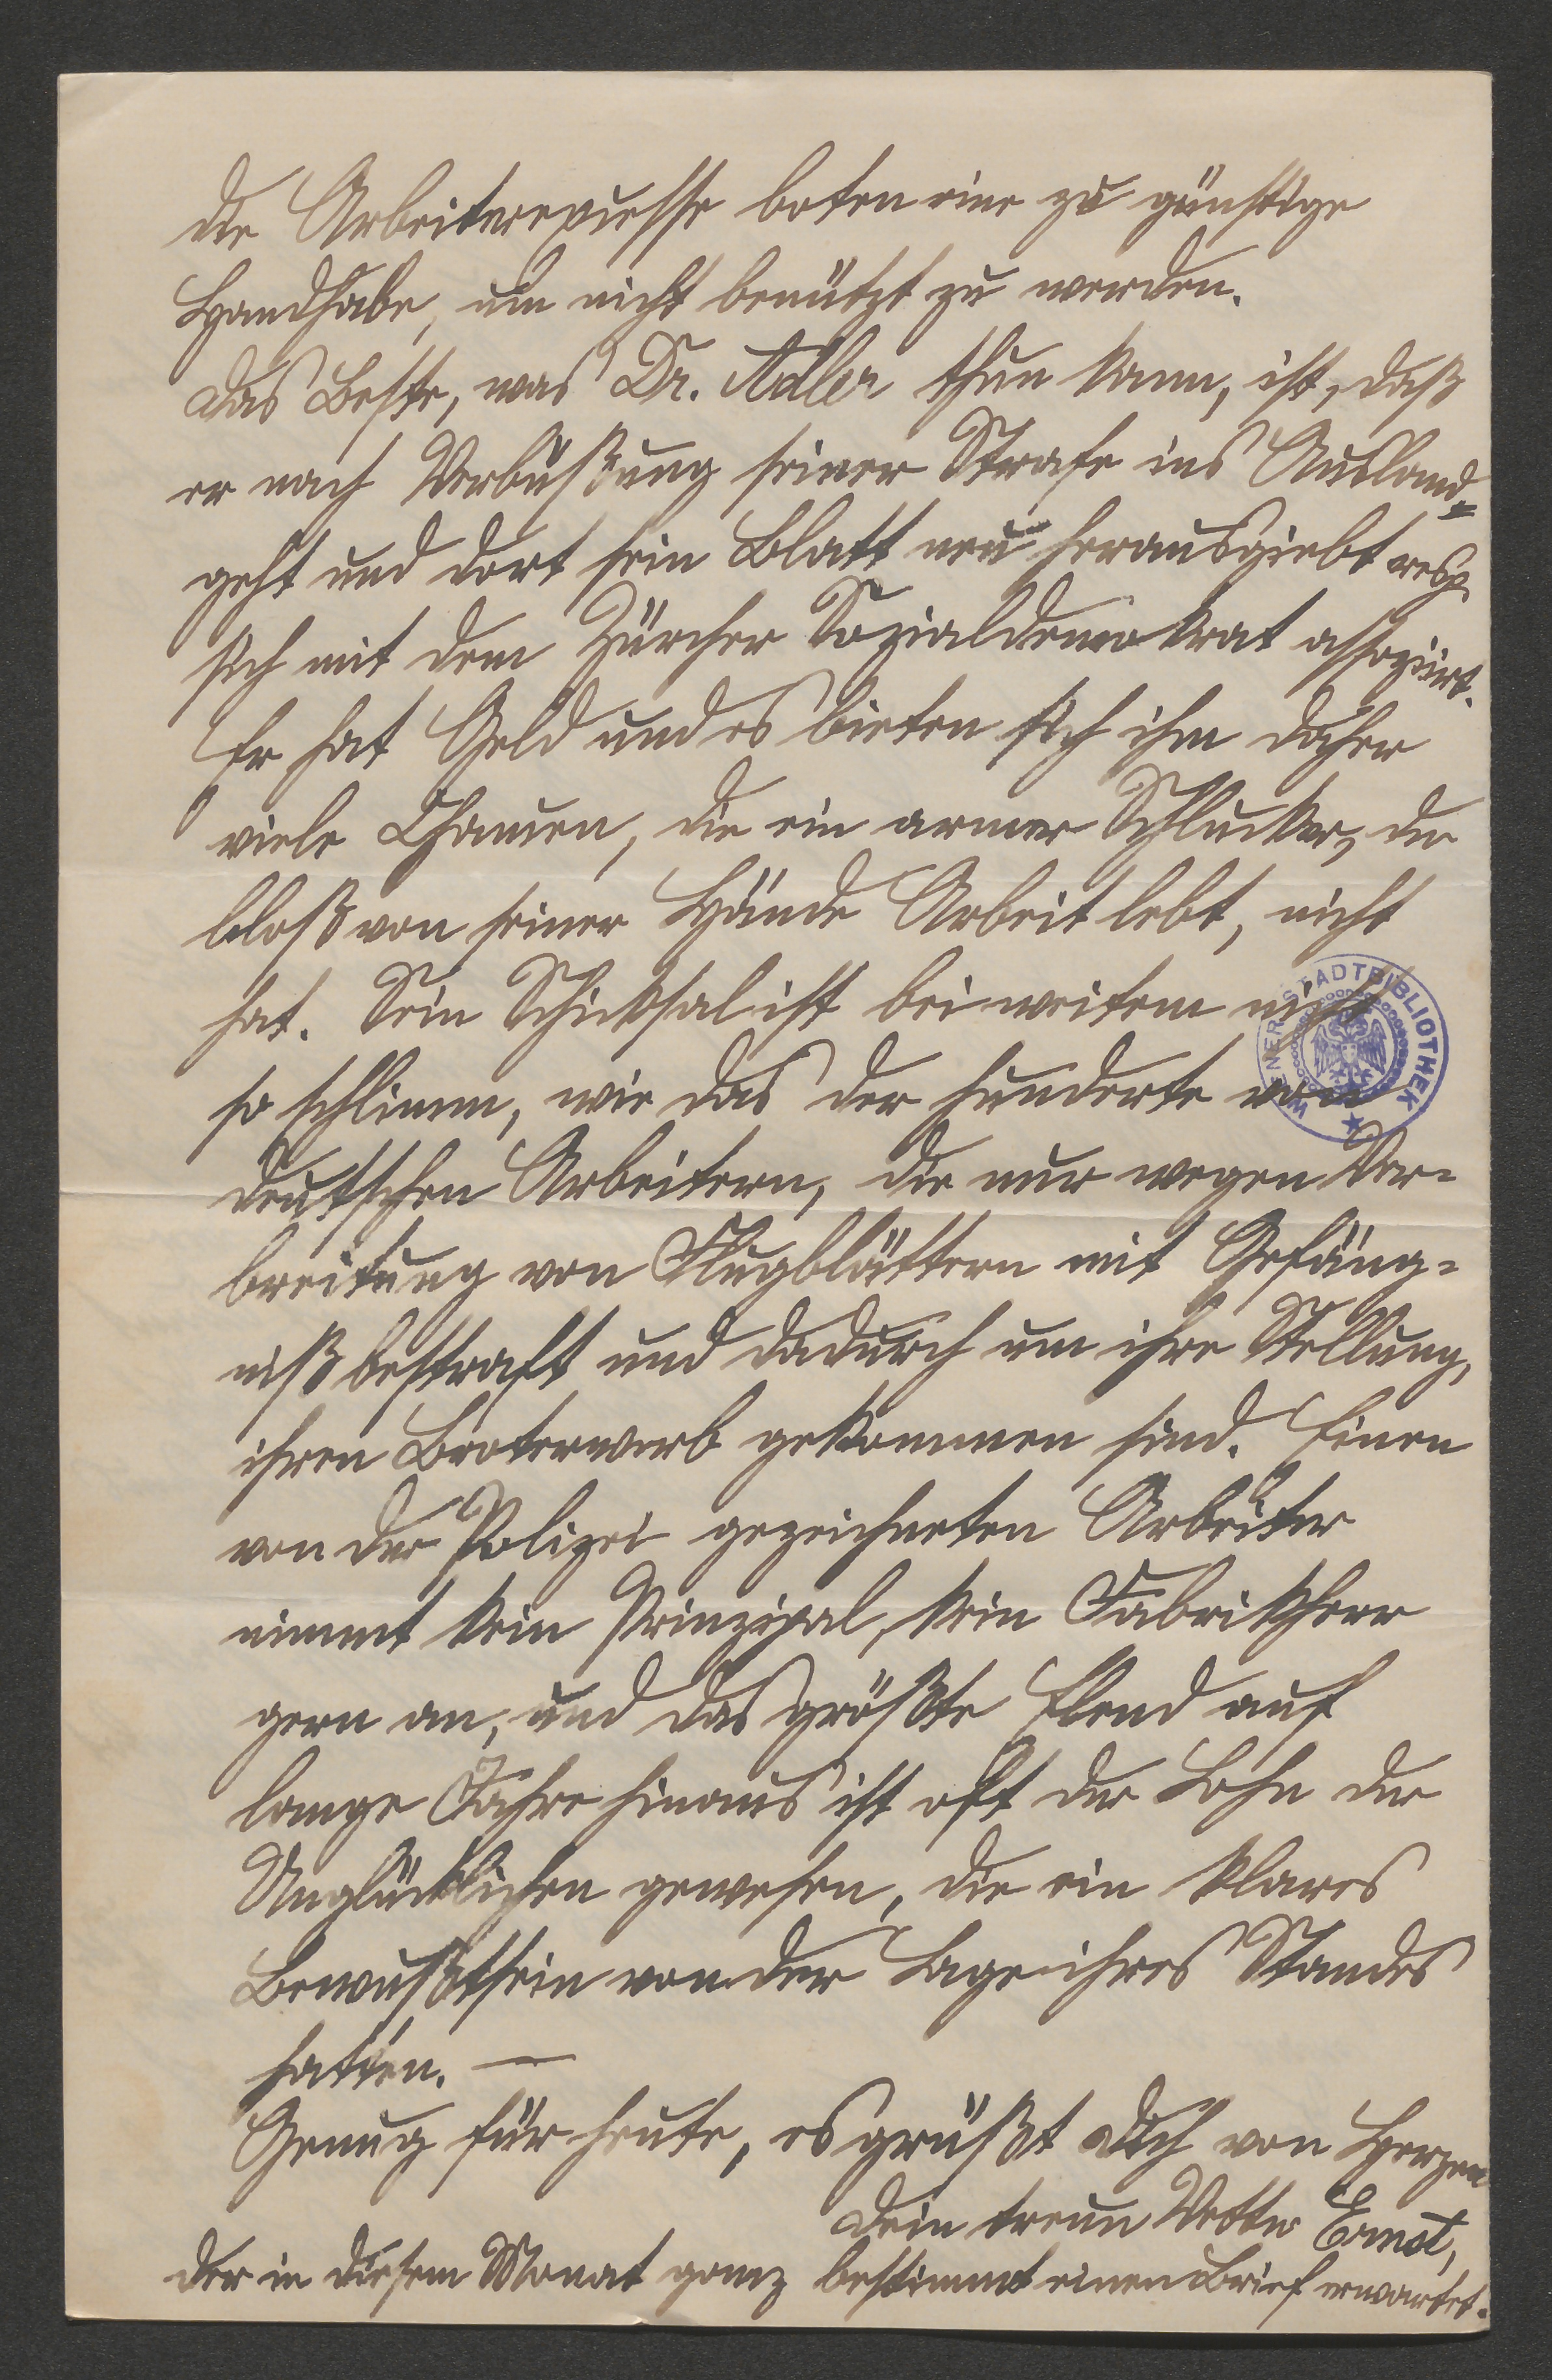 die Arbeiterexcesse boten eine zu günstige
Handhabe, um nicht benützt zu werden.
Das Beste, was Dr. Adler thun kann, ist, daß
er nach Verbüßung seiner Strafe ins Ausland
geht und dort sein Blatt neu herausgiebt resp.
sich mit dem Zürcher Sozialdemokrat assoziirt.
Er hat Geld und es bieten sich ihm daher
viele Chancen, die ein armer Schlucker, der
bloß von seiner Hände Arbeit lebt, nicht
hat. Sein Schicksal ist bei weitem nicht
so schlimm, wie das der hunderte von
deutschen Arbeitern, die nur wegen Ver-
breitung von Flugblättern mit Gefäng-
niß bestraft und dadurch um ihre Stellung,
ihren Broterwerb gekommen sind. Einen
von der Polizei gezeichneten Arbeiter
nimmt kein Prinzipal, kein Fabrikherr
gern an, und das größte Elend auf
lange Jahre hinaus ist oft der Lohn der
Unglücklichen gewesen, die ein klares
Bewußtsein von der Lage ihres Standes
hatten. —
Genug für heute, es grüßt Dich von Herzen
Dein treuer Vetter Ernst,
der in diesem Monat ganz bestimmt einen Brief erwartet.
WIENER STADTBIBLIOTHEK